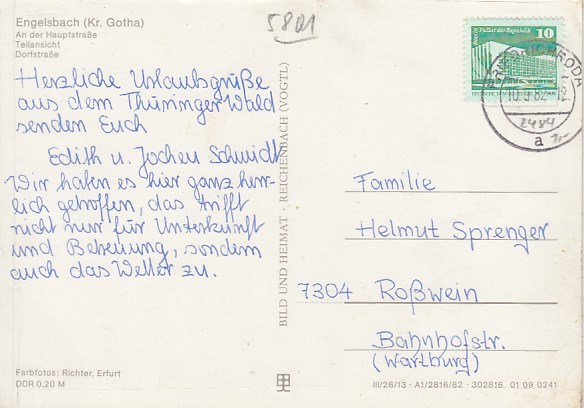 Engelsbach (Kr. Gotha)
An der Hauptstraße
Teilansicht
Dorfstraße
5801
Herzliche Urlaubsgrüße
aus dem Thüringer Wald
senden Euch
Edith u. Jochen Schmidt
Wir haben es hier ganz herr-
lich getroffen, das trifft
nicht nur für Unterkunft
und Betreuung, sondern
auch das Wetter zu.
Farbfotos: Richter, Erfurt
DDR 0,20 M
BILD UND HEIMAT · REICHENBACH (VOGTL)
Palast der Republik
10
a
Familie
Helmut Sprenger
7304 Roßwein
Bahnhofstr.
(Wartburg)
III/26/13 · A1/2816/82 · 302816 01 09 0241